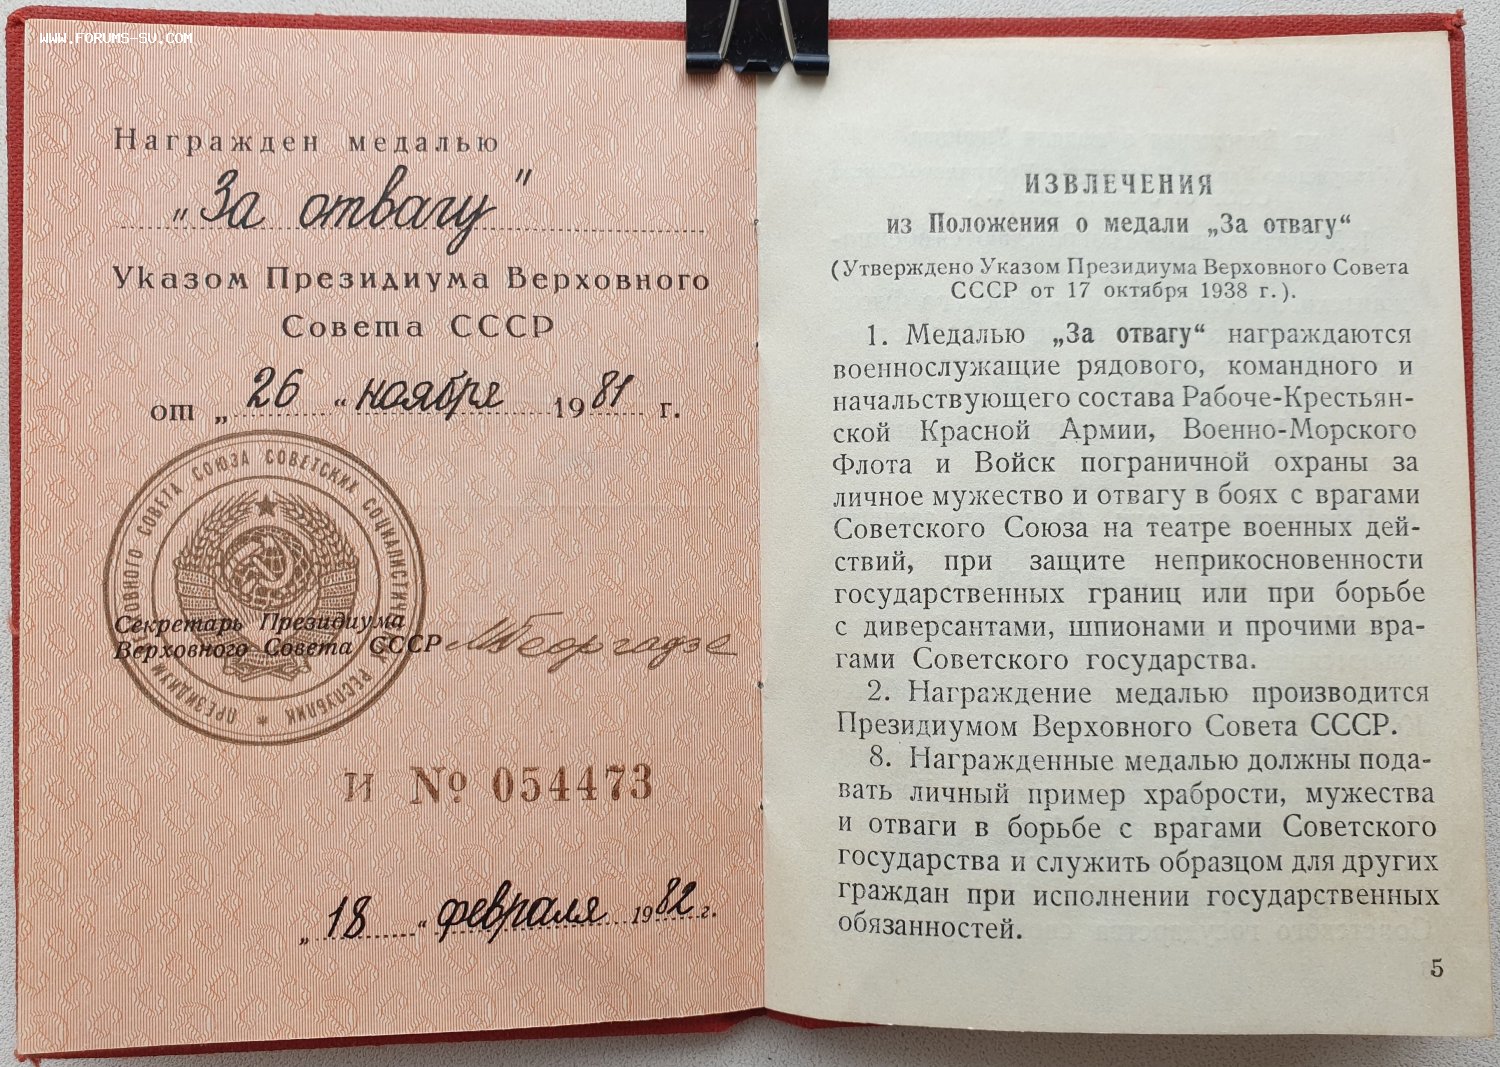 WWW.FORUMS-SU.COM
Награжден медалью
„За отвагу"
Указом Президиума Верховного
Совета СССР
от „ 26 " ноября 1981 г.
ПРЕЗИДИУМ ВЕРХОВНОГО СОВЕТА СОЮЗА СОВЕТСКИХ СОЦИАЛИСТИЧЕСКИХ РЕСПУБЛИК *
Секретарь Президиума
Верховного Совета СССР МГеоргадзе
И № 054473
„ 18 " февраля 1982 г.
ИЗВЛЕЧЕНИЯ
из Положения о медали „За отвагу“
(Утверждено Указом Президиума Верховного Совета
СССР от 17 октября 1938 г.).
1. Медалью „За отвагу“ награждаются
военнослужащие рядового, командного и
начальствующего состава Рабоче-Крестьян-
ской Красной Армии, Военно-Морского
Флота и Войск пограничной охраны за
личное мужество и отвагу в боях с врагами
Советского Союза на театре военных дей-
ствий, при защите неприкосновенности
государственных границ или при борьбе
с диверсантами, шпионами и прочими вра-
гами Советского государства.
2. Награждение медалью производится
Президиумом Верховного Совета СССР.
8. Награжденные медалью должны пода-
вать личный пример храбрости, мужества
и отваги в борьбе с врагами Советского
государства и служить образцом для других
граждан при исполнении государственных
обязанностей.
5